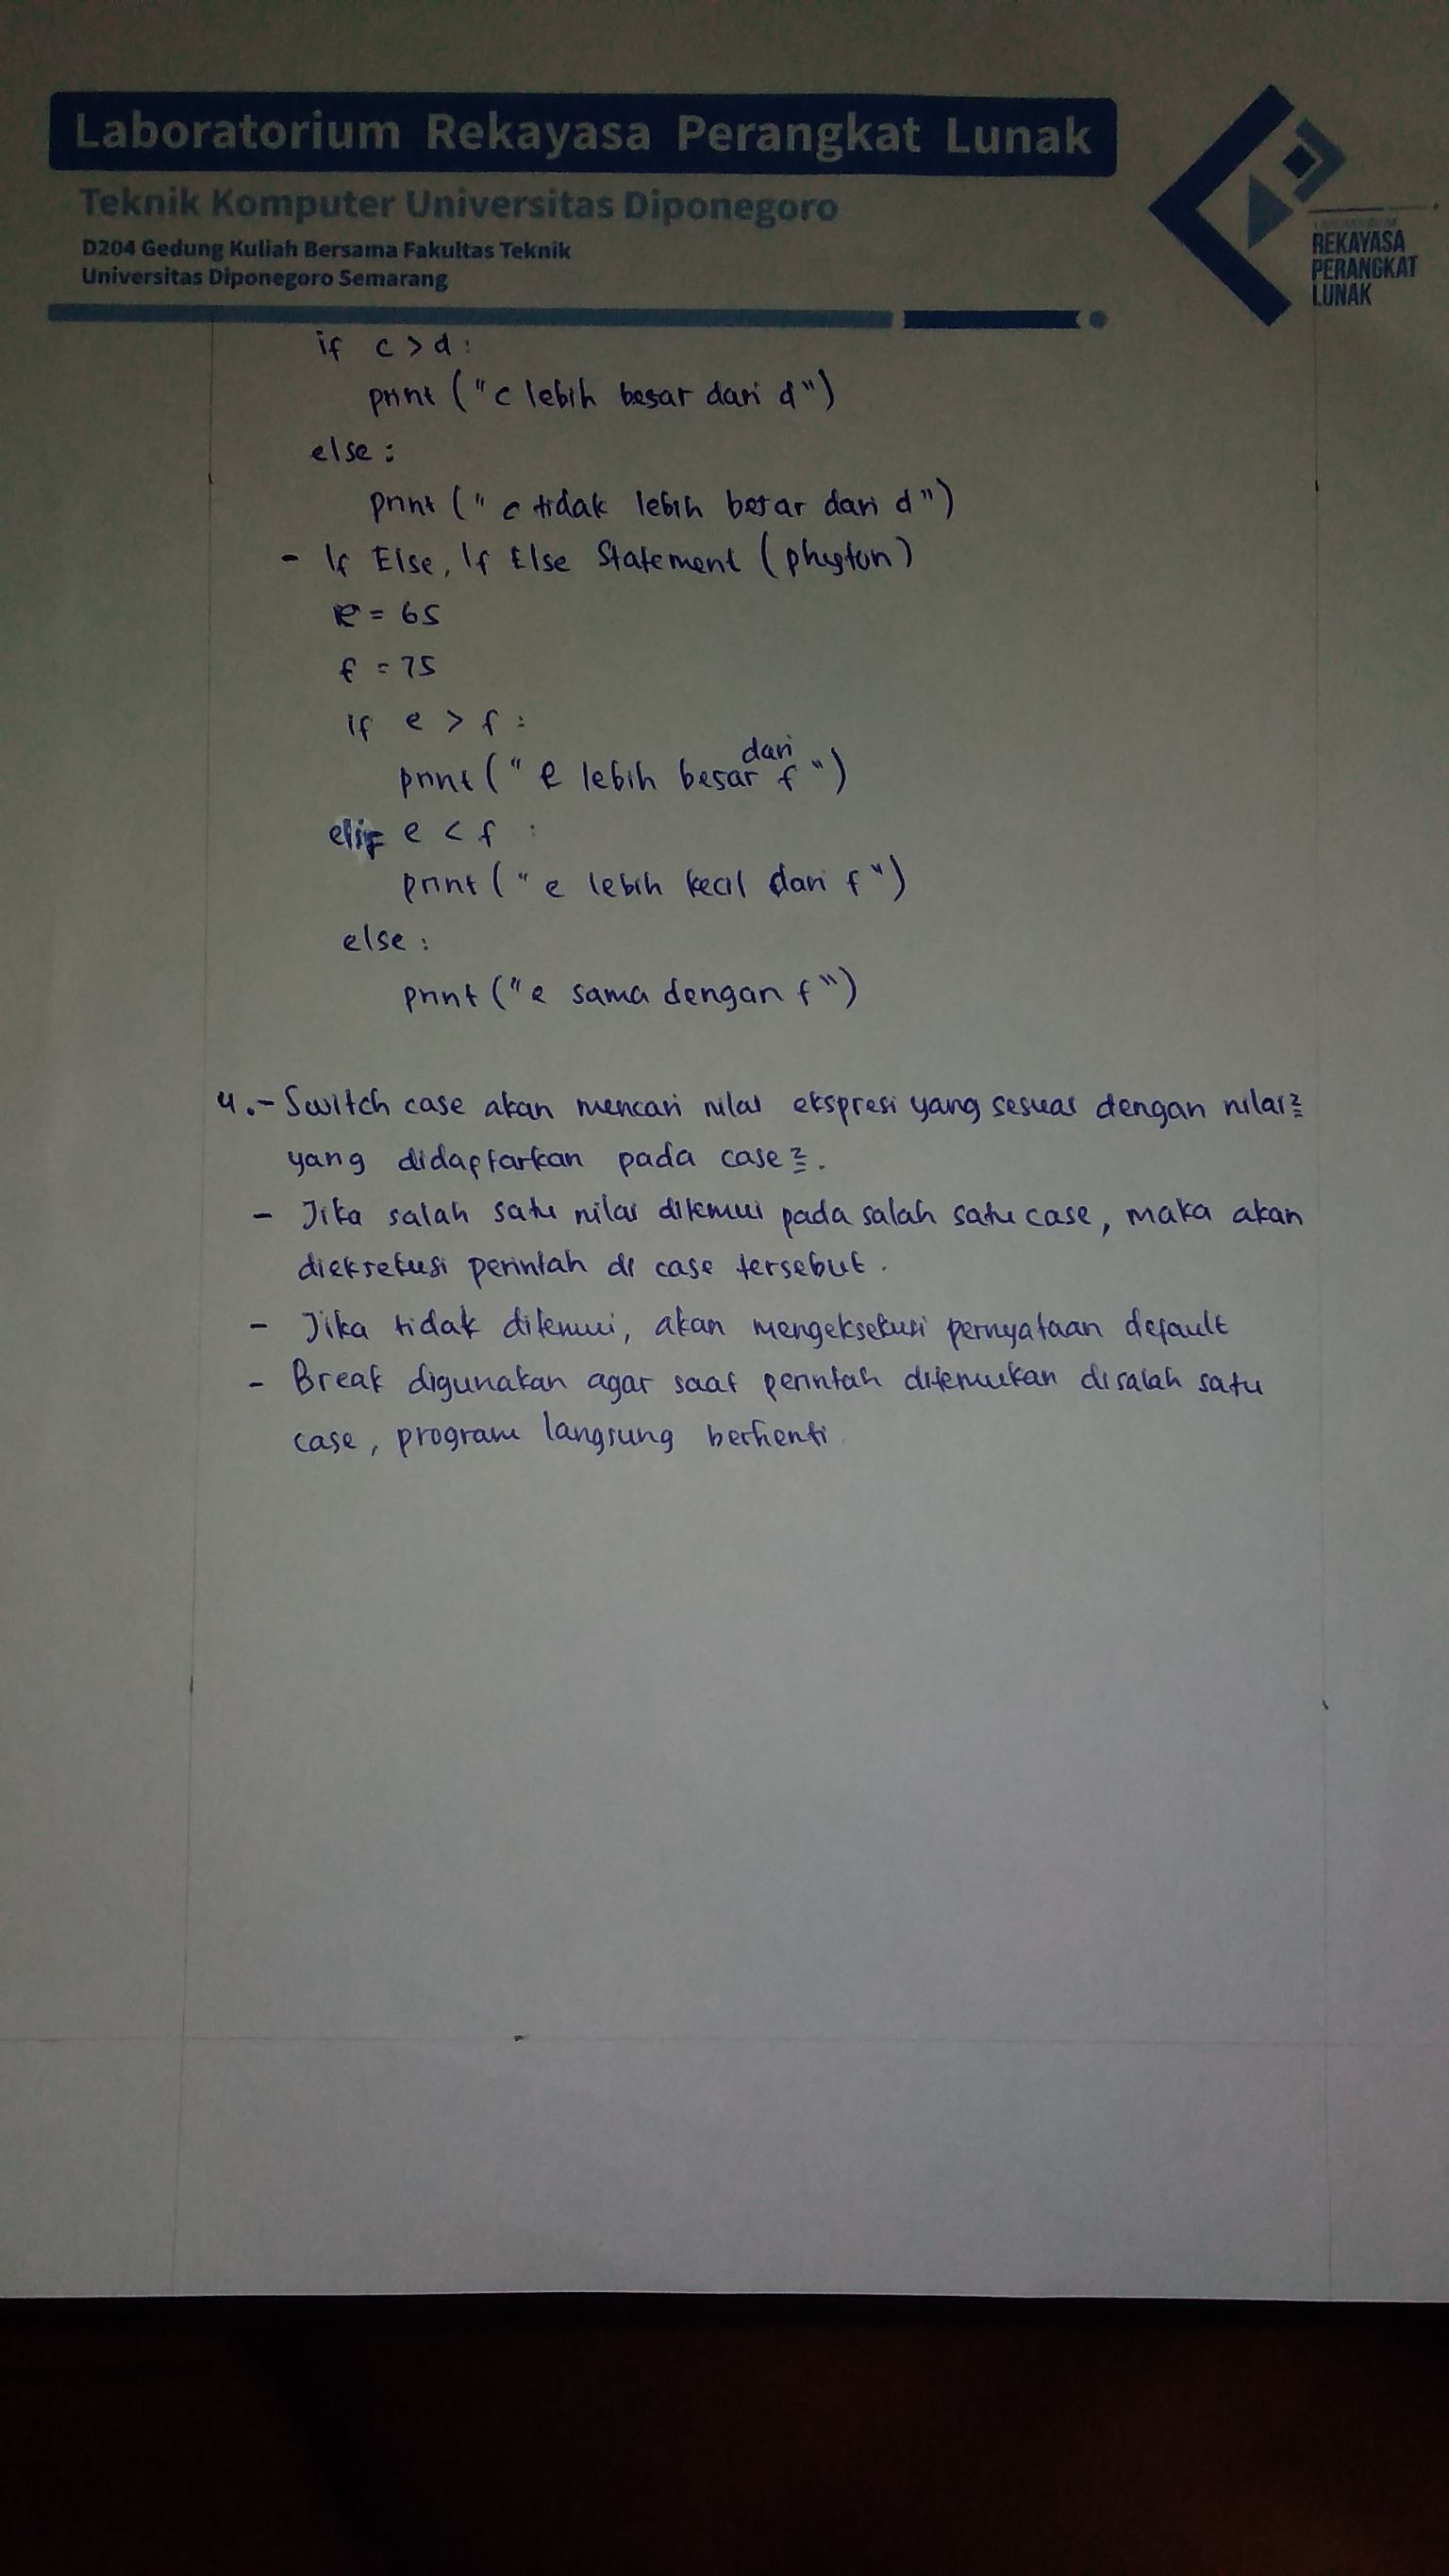 Laboratorium Rekayasa Perangkat Lunak
Teknik Komputer Universitas Diponegoro
D204 Gedung Kuliah Bersama Fakultas Teknik
Universitas Diponegoro Semarang
REKAYASA
PERANGKAT
LUNAK
if c > d :
print ("c lebih besar dari d")
else :
print ("c tidak lebih besar dari d")
- If Else, If Else Statement (phyton)
e = 65
f = 75
if e > f :
print ("e lebih besar dari f")
elif e < f :
print ("e lebih kecil dari f")
else :
print ("e sama dengan f")
4. - Switch case akan mencari nilai ekspresi yang sesuai dengan nilai2
yang didaftarkan pada case2.
- Jika salah satu nilai ditemui pada salah satu case, maka akan
dieksekusi perintah di case tersebut.
- Jika tidak ditemui, akan mengeksekusi pernyataan default
- Break digunakan agar saat perintah ditemukan disalah satu
case, program langsung berhenti